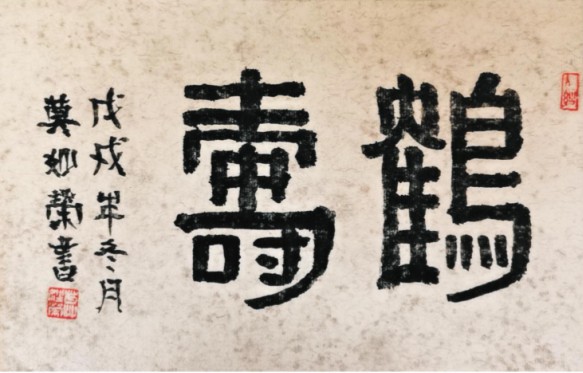 鶴壽
戊戌年冬月
莫妙榮書